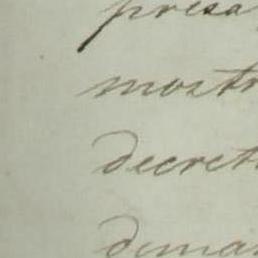 presa
mostr
decret
diman